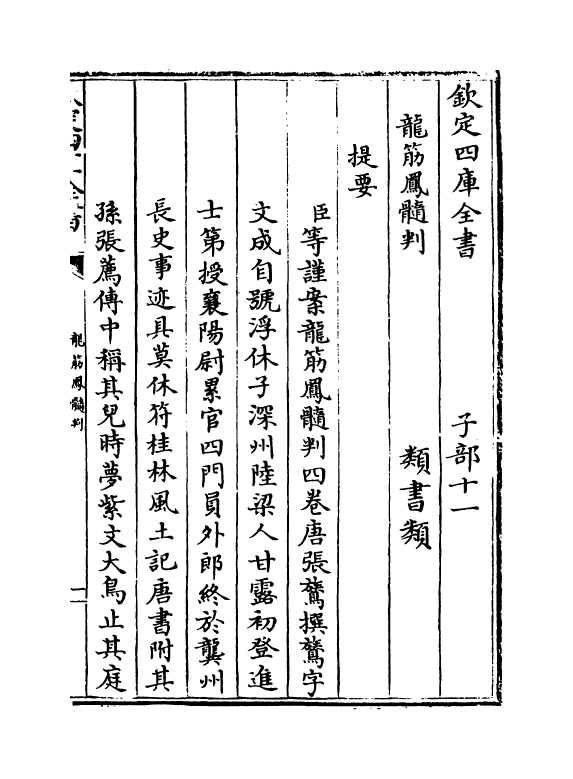 欽定四庫全書　子部十一
龍筋鳳髓判　類書類
提要
臣等謹案龍筋鳳髓判四卷唐張鷟撰鷟字
文成自號浮休子深州陸梁人甘露初登進
士第授襄陽尉累官四門員外郎終於龔州
長史事迹具莫休符桂林風土記唐書附其
孫張薦傳中稱其兒時夢紫文大鳥止其庭
龍筋鳳髓判